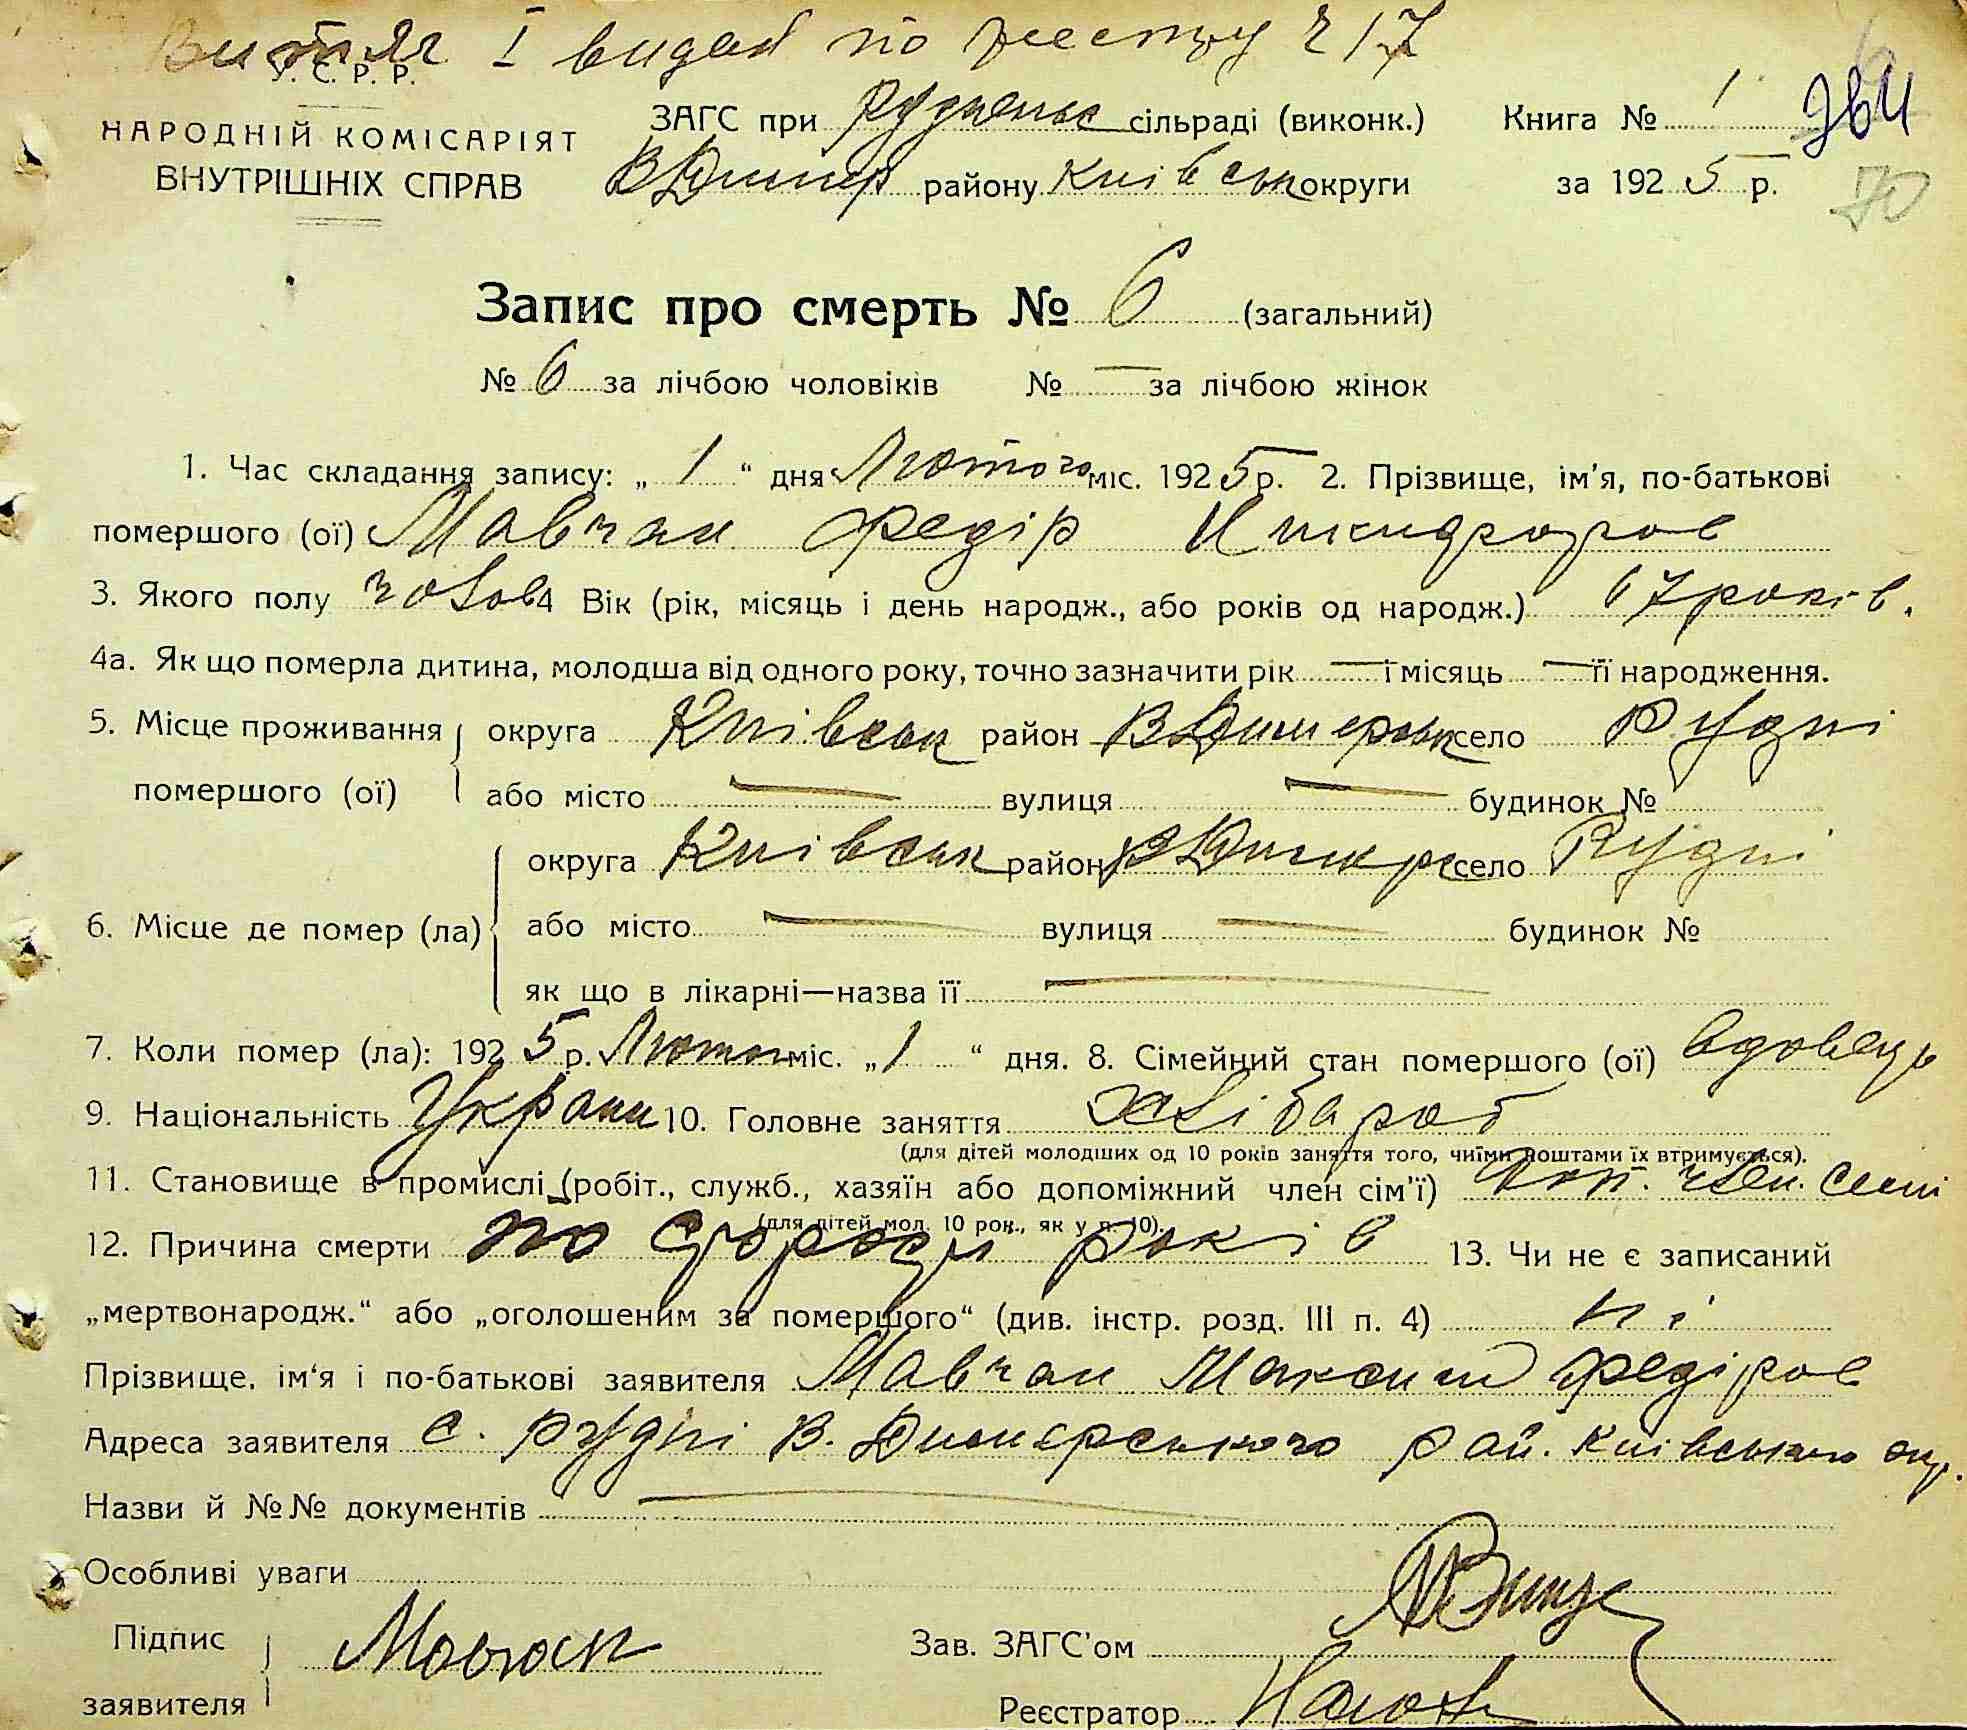 Витяг I видан по реєстру ч 17
У. С. Р. Р.
НАРОДНІЙ КОМІСАРІЯТ
ВНУТРІШНІХ СПРАВ
ЗАГС при Руднянськ сільраді (виконк.)
ВДимер району Київськ округи
Книга № 1
за 1925 р.
70
Запис про смерть № 6 (загальний)
№ 6 за лічбою чоловіків № — за лічбою жінок
1. Час складання запису: „ 1 “ дня Лютого міс. 1925 р. 2. Прізвище, ім'я, по-батькові
помершого (ої) Мавчан Федір Никифоров
3. Якого полу чолов 4 Вік (рік, місяць і день народж., або років од народж.) 67 років.
4а. Як що померла дитина, молодша від одного року, точно зазначити рік — і місяць — її народження.
5. Місце проживання помершого (ої) округа Київськ район ВДимерськ село Рудні
або місто — вулиця — будинок №
6. Місце де помер (ла) округа Київськ район ВДимерс село Рудні
або місто — вулиця — будинок №
як що в лікарні—назва її —
7. Коли помер (ла): 1925 р. Лютого міс. „1 “ дня. 8. Сімейний стан помершого (ої) вдовець
9. Національність Україн 10. Головне заняття хлібароб
(для дітей молодших од 10 років заняття того, чиїми коштами їх втримується).
11. Становище в промислі (робіт., служб., хазяїн або допоміжний член сім'ї) доп. член. семі
(для дітей мол. 10 рок., як у п. 10).
12. Причина смерти по старости років 13. Чи не є записаний
„мертвонародж.“ або „оголошеним за помершого“ (див. інстр. розд. III п. 4) ні
Прізвище, ім'я і по-батькові заявителя Мавчан Максим Федіров
Адреса заявителя с. Рудні В. Димерського рай. Київського окр.
Назви й №№ документів —
Особливі уваги
Підпис заявителя Мовчан
Зав. ЗАГС'ом
Реєстратор